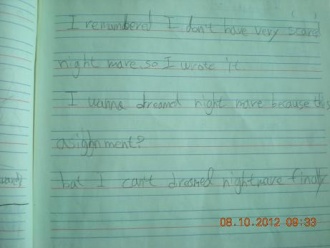 I remembered I don't have very scared
night mare so I wrote it
I wanna dreamed night mare because this
assignment?
but I can't dreamed nightmare finally
08.10.2012 09:33